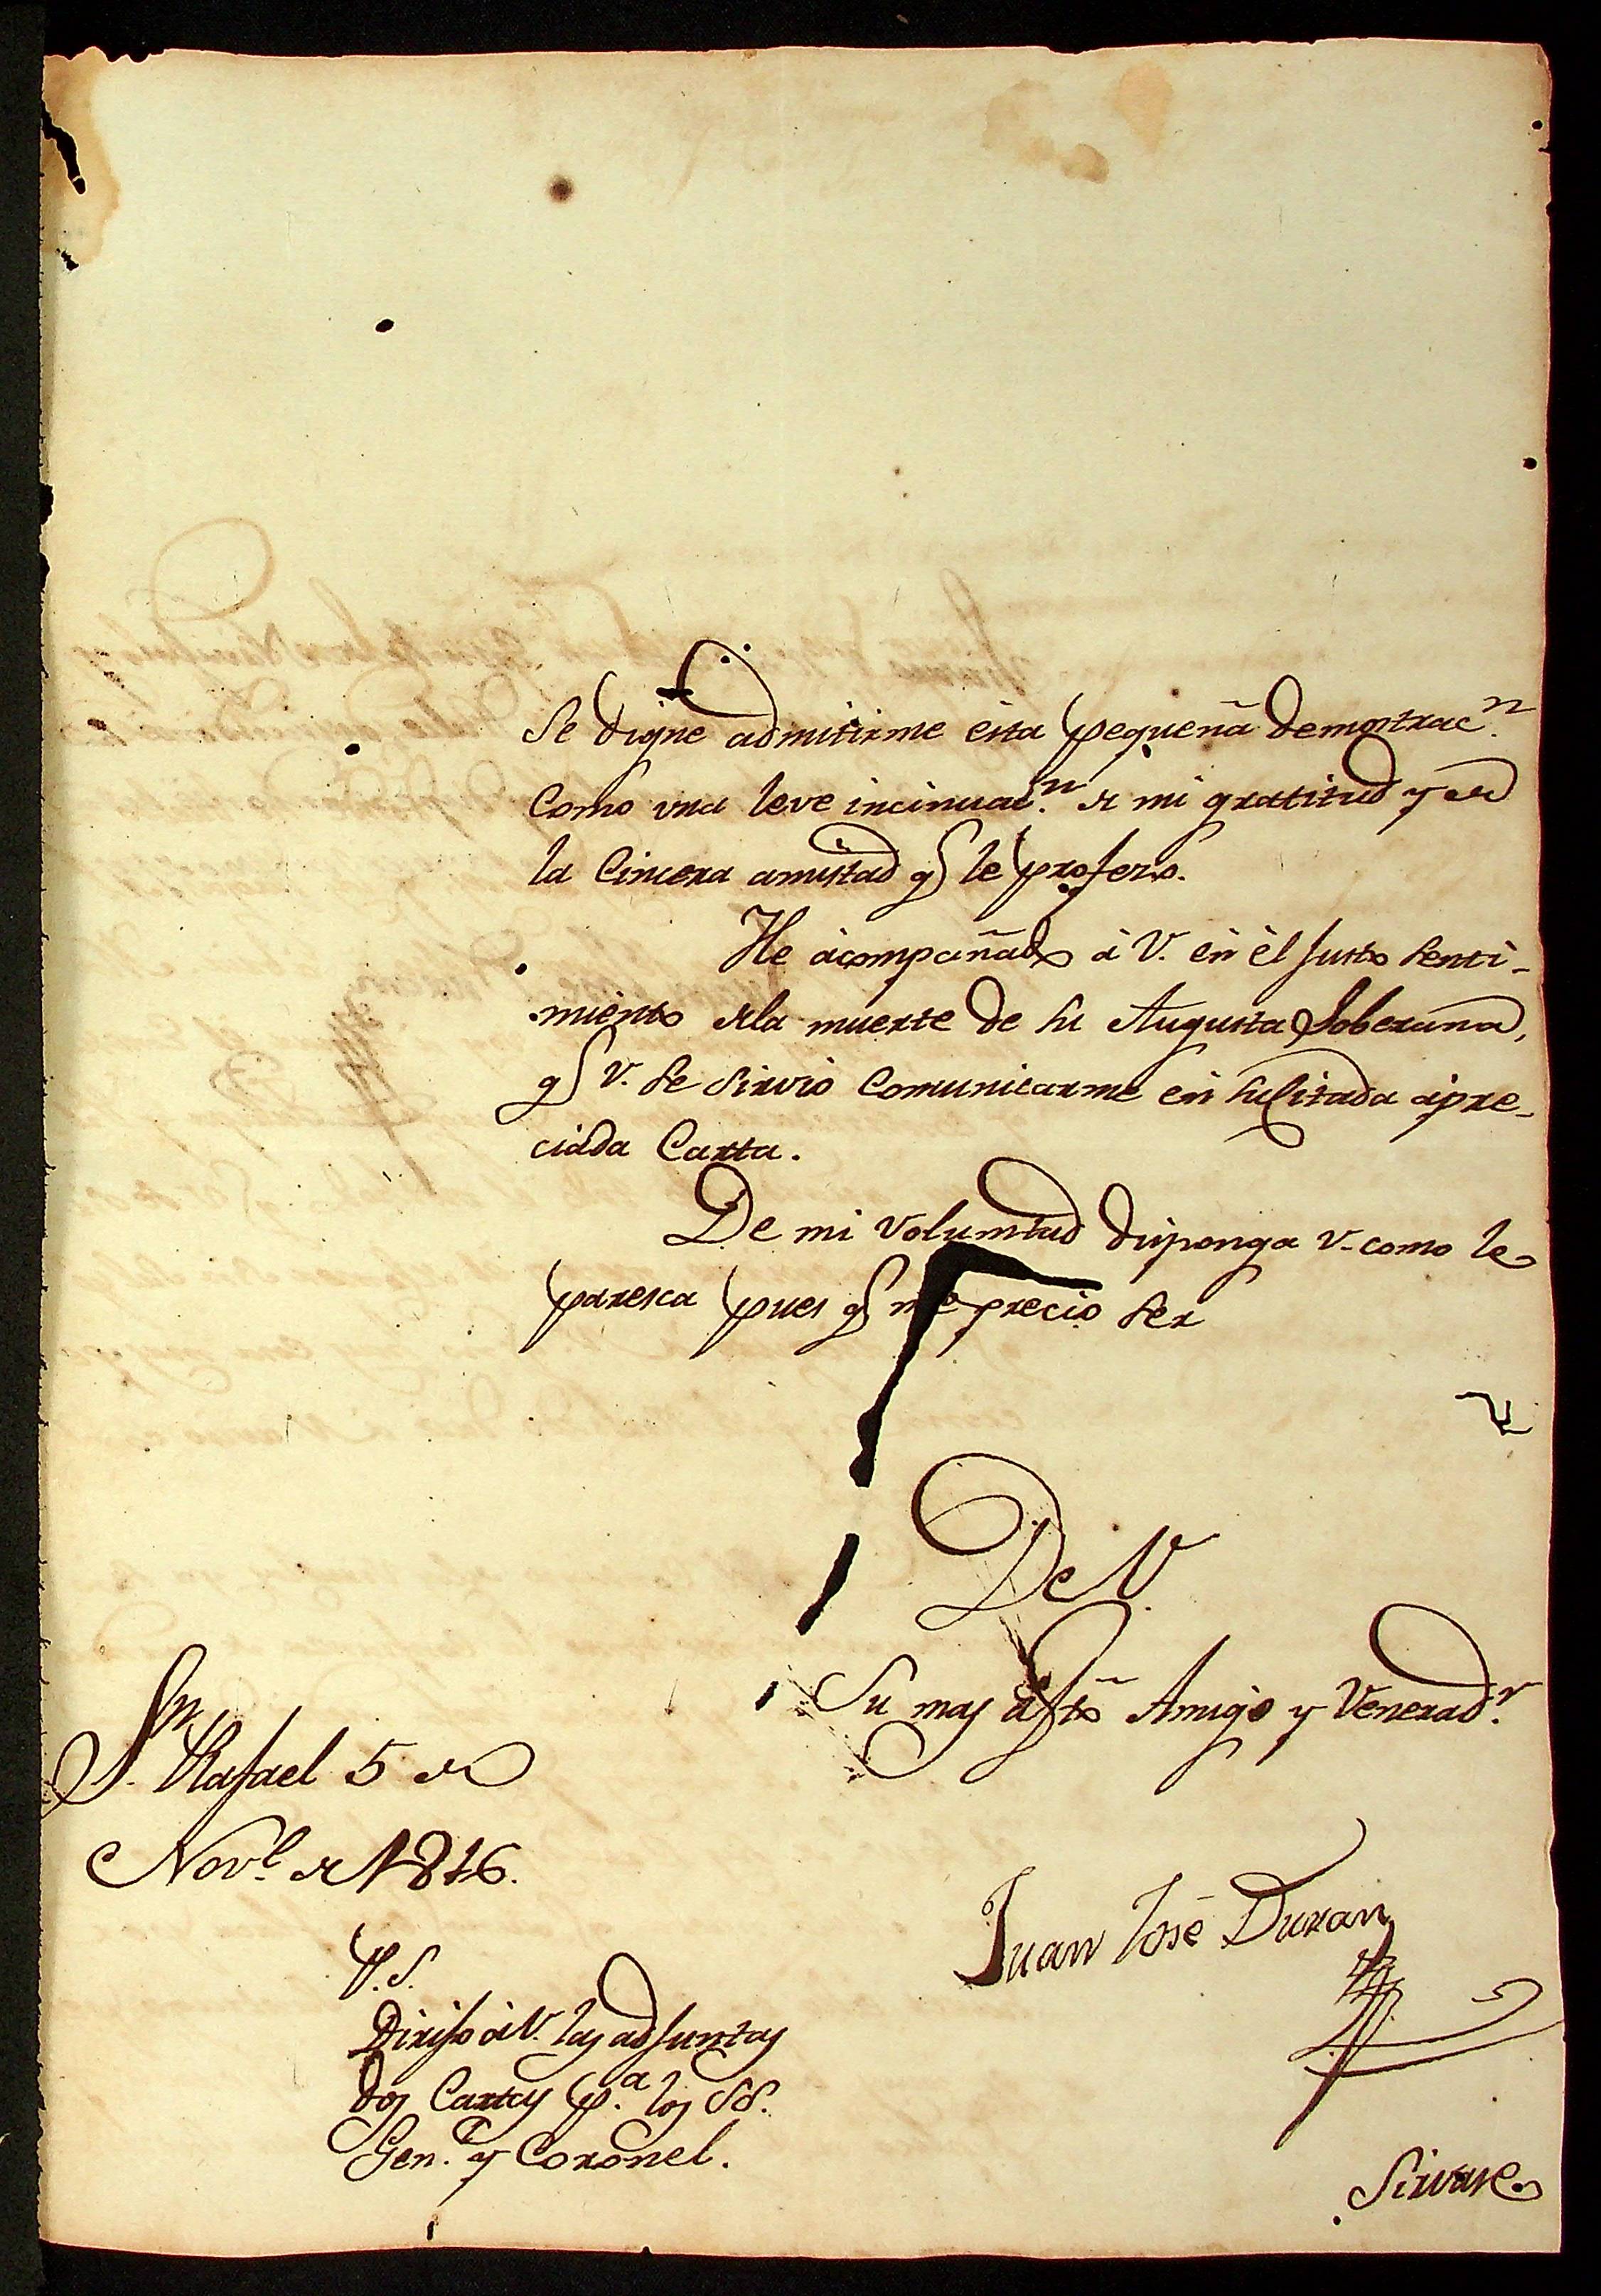 Se digne admitirme èsta pequeña demostrac.n
Como vna leve incinuac.n de mi gratitud y de
la Cincera amistad q.e le profero.
He àcompañado à V. èn èl justo senti-
miento dela muerte de su Augusta Soberana,
q.e V. se sirvio Comunicarme èn su Citada àpre-
ciada Carta.
De mi volumtad disponga V. como le
paresca pues q.e me precio ser
De V.
Su mas afto Amigo y Venerad.r
S.n Rafael 5 de
Nov.e de 1816.
Juan José Duran
P.S.
Dirijo à V. las adjuntas
dos Cartas p.a los SS.
Gen.l y Coronel.
Sirvase